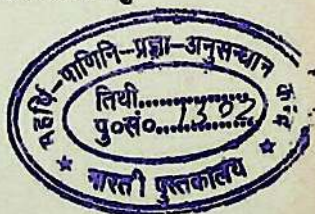 महर्षि-पाणिनि-प्रज्ञा-अनुसन्धान केंद्र
तिथी..................
पु०सं०...1303...
भारती पुस्तकालय